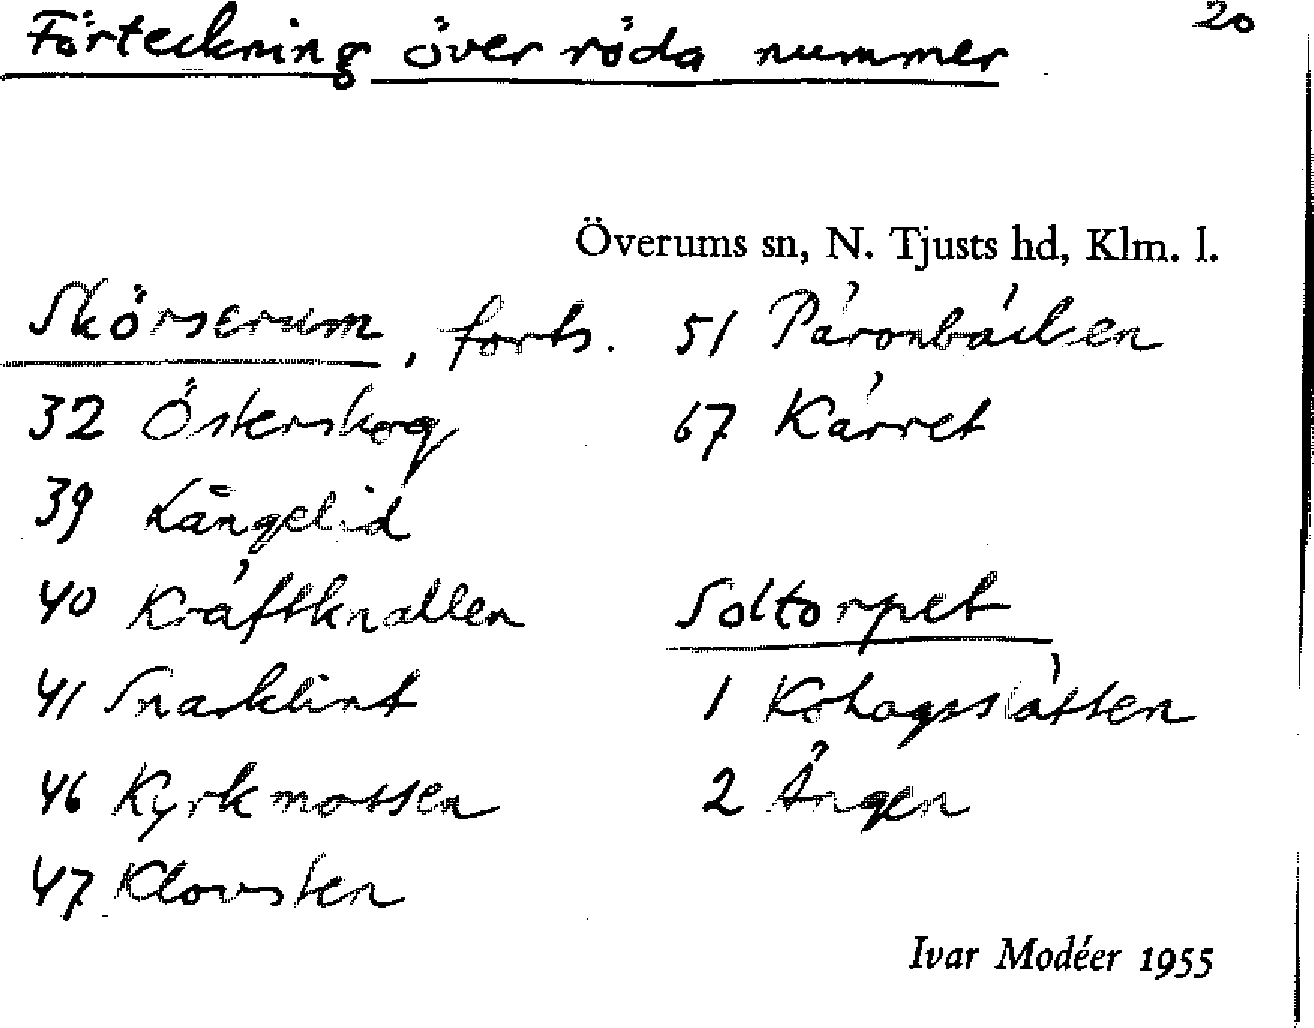 20
Förteckning över röda nummer
Överums sn, N. Tjusts hd, Klm. l.
Skörserum, forts.
32 Österskog
39 Långelid
40 Kräftknallen
41 Snarklint
46 Kyrkmossen
47 Klovsten
51 Päronbäcken
67 Kärret
Soltorpet
1 Kohagsslätten
2 Ängen
Ivar Modéer 1955